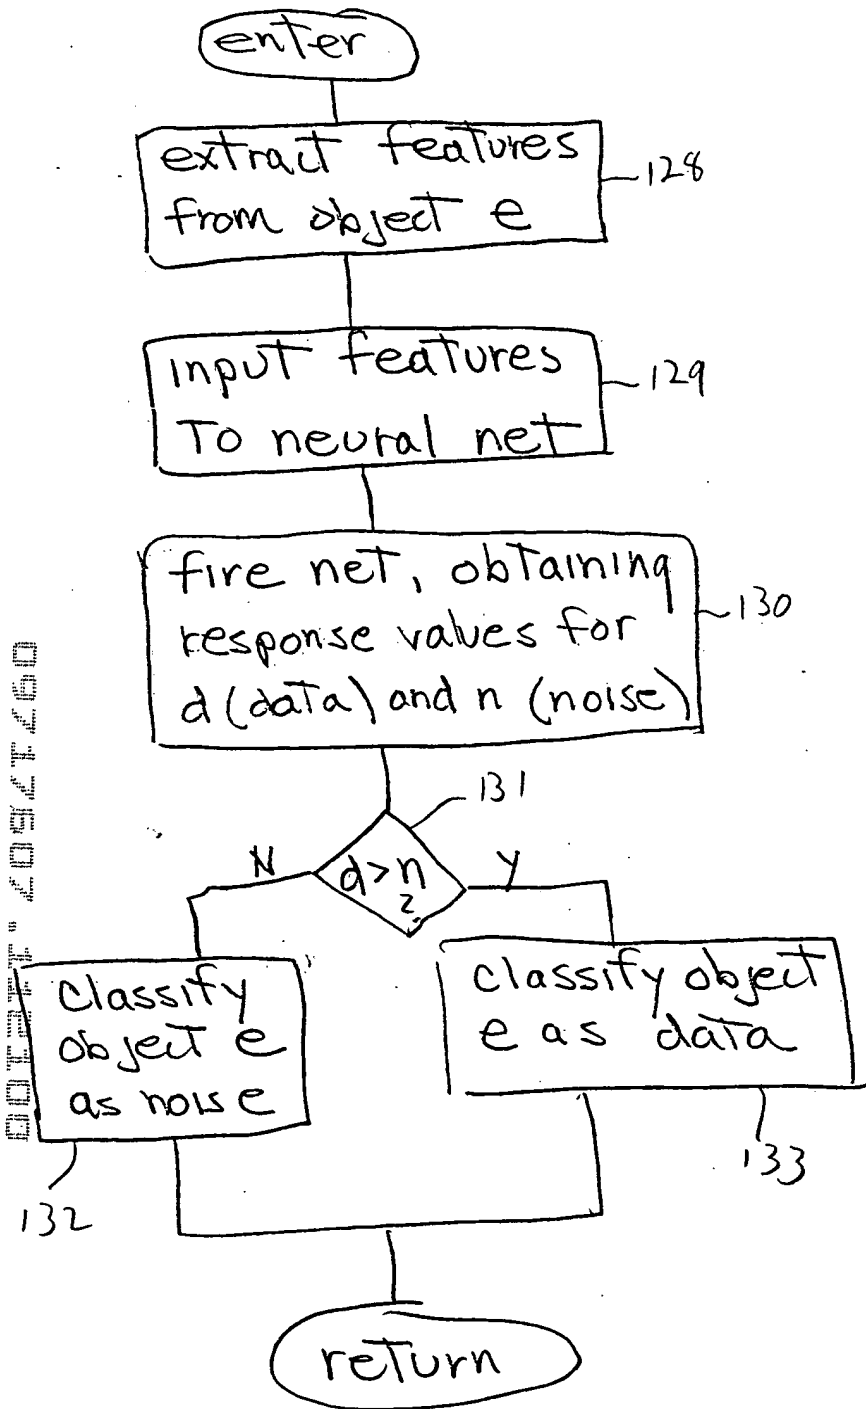 enter
extract features
from object e
128
input features
To neural net
129
fire net, obtaining
response values for
d (data) and n (noise)
130
131
d>n
?
N
Y
classify
object e
as noise
132
classify object
e as data
133
return